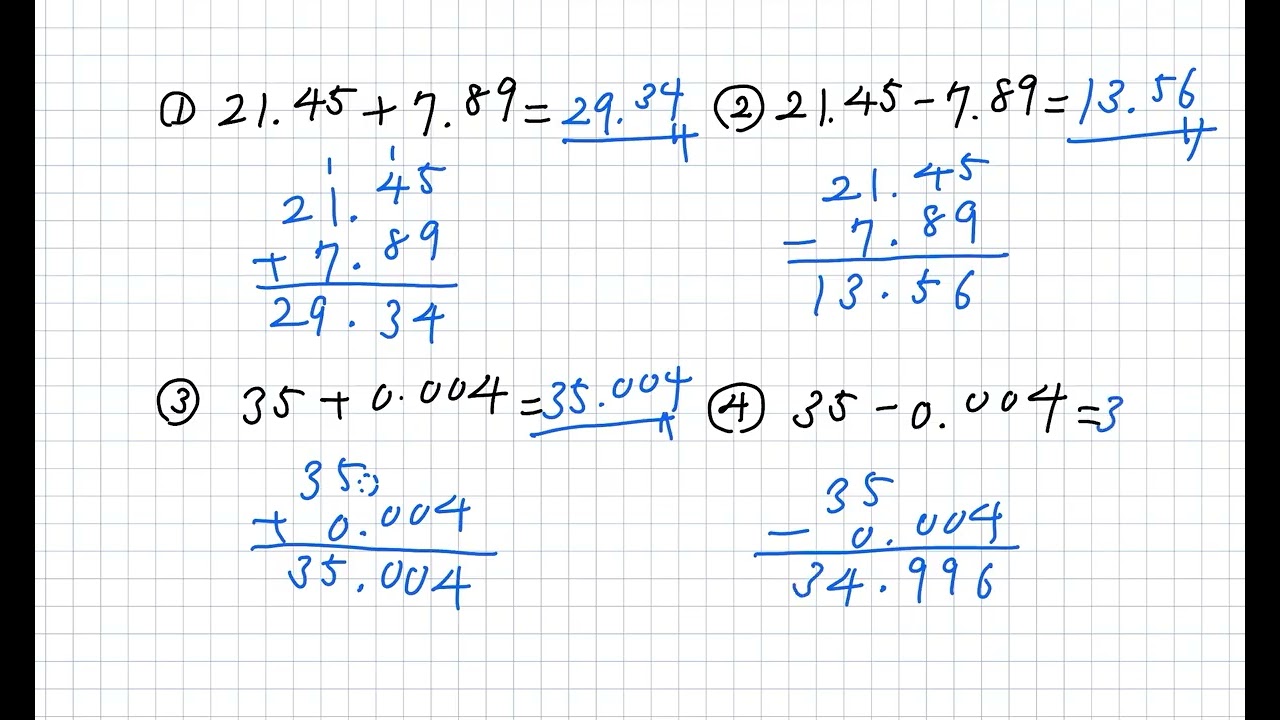 ① 21.45 + 7.89 = 29.34
1 1
21.45
+ 7.89
29.34
② 21.45 - 7.89 = 13.56
21.45
- 7.89
13.56
③ 35 + 0.004 = 35.004
35
+ 0.004
35.004
④ 35 - 0.004 = 3
35
- 0.004
34.996